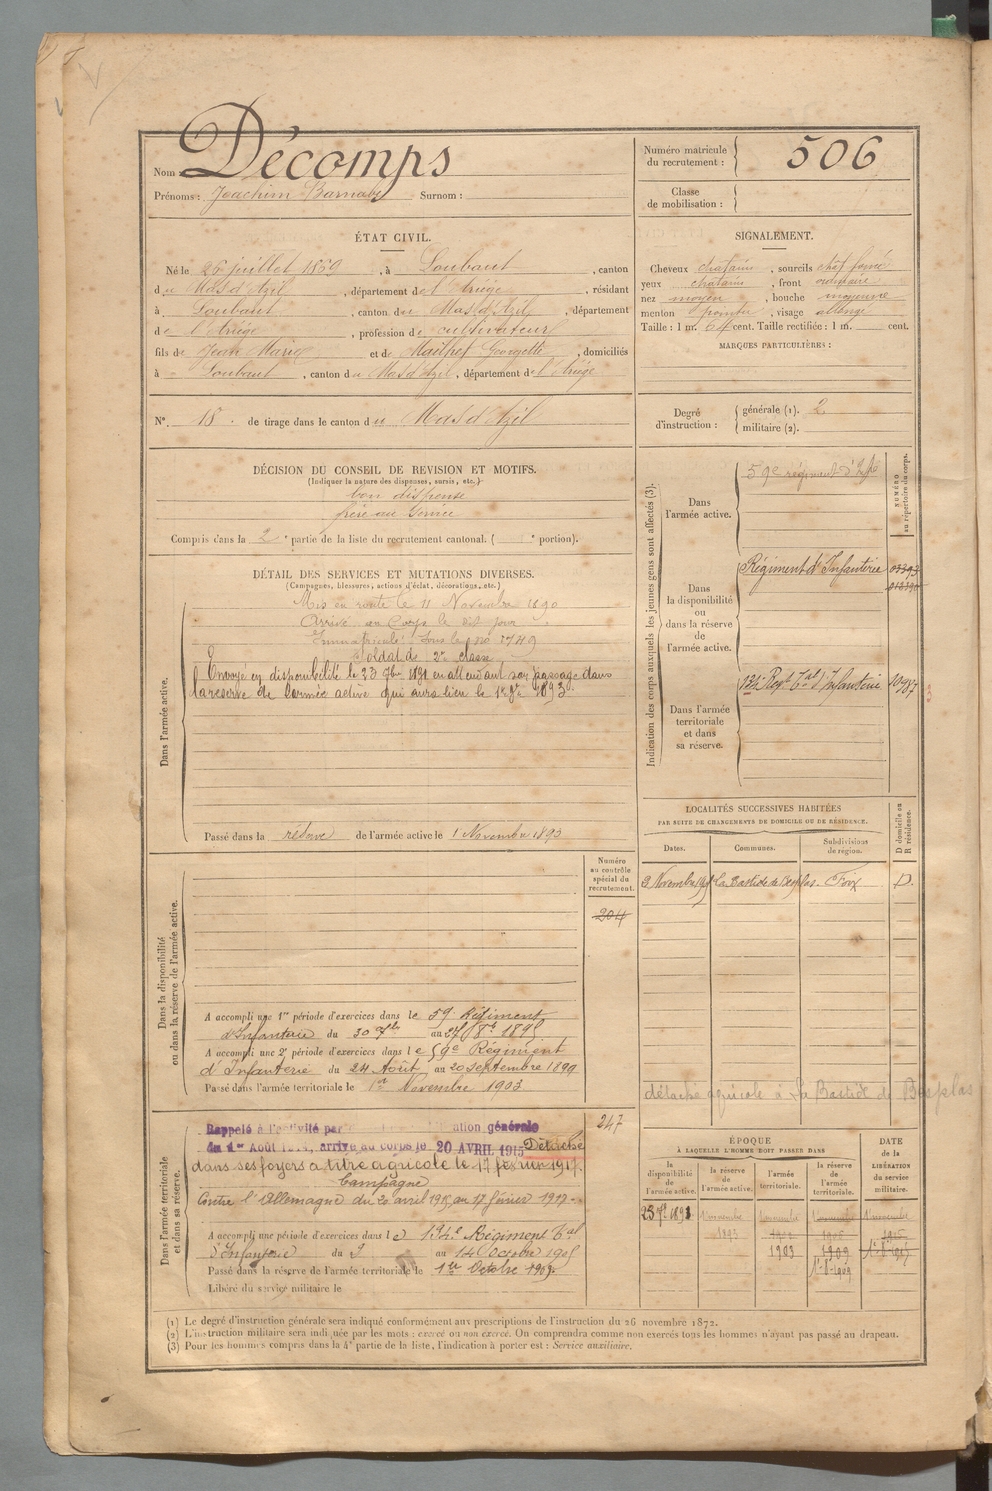 Nom : Décomps
Prénoms : Joachim Barnabé Surnom :
Numéro matricule du recrutement : 506
Classe de mobilisation :
ÉTAT CIVIL.
Né le 26 juillet 1869, à Loubaut, canton
du Mas d'Azil, département de l'Ariège, résidant
à Loubaut, canton du Mas d'Azil, département
de l'Ariège, profession de cultivateur
fils de Jean Marie et de Mailhet Georgette, domiciliés
à Loubaut, canton du Mas d'Azil, département de l'Ariège
N° 18. de tirage dans le canton du Mas d'Azil
SIGNALEMENT.
Cheveux chatains, sourcils chat foncé
yeux chatains, front ordinaire
nez moyen, bouche moyenne
menton pointu, visage allongé
Taille : 1 m. 64 cent. Taille rectifiée : 1 m. cent.
MARQUES PARTICULIÈRES :
Degré d'instruction : générale (1). 2
militaire (2).
DÉCISION DU CONSEIL DE REVISION ET MOTIFS.
(Indiquer la nature des dispenses, sursis, etc.)
bon dispensé
frère au service
Compris dans la 2e partie de la liste du recrutement cantonal. ( e portion).
DÉTAIL DES SERVICES ET MUTATIONS DIVERSES.
(Campagnes, blessures, actions d'éclat, décorations, etc.)
Dans l'armée active.
Mis en route le 11 Novembre 1890
Arrivé au Corps le dit jour
Immatriculé sous le no 5749
Soldat de 2e classe
Envoyé en disponibilité le 23 7bre 1891 en attendant son passage dans
la réserve de l'armée active qui aura lieu le 1er 9bre 1893.
Passé dans la réserve de l'armée active le 1 Novembre 1893
Indication des corps auxquels les jeunes gens sont affectés (3).
NUMÉRO au répertoire du corps.
Dans l'armée active.
59e régiment d'Infie
Dans la disponibilité ou dans la réserve de l'armée active.
Régiment d'Infanterie
Dans l'armée territoriale et dans sa réserve.
134e Regt Tal Infanterie
LOCALITÉS SUCCESSIVES HABITÉES
PAR SUITE DE CHANGEMENTS DE DOMICILE OU DE RÉSIDENCE.
Dates. Communes. Subdivisions de région. D domicile ou R résidence.
La Bastide de Besplas. Foix D.
détaché agricole à La Bastide de Besplas
Dans la disponibilité ou dans la réserve de l'armée active.
Numéro au contrôle spécial du recrutement.
204
A accompli une 1re période d'exercices dans le 59 Régiment
d'Infanterie du 30 7bre au 27 8bre 1895
A accompli une 2e période d'exercices dans le 59e Régiment
d'Infanterie du 24 Août au 20 septembre 1899
Passé dans l'armée territoriale le 1er Novembre 1903
Dans l'armée territoriale et dans sa réserve.
247
Rappelé à l'activité par ation générale
du 1er Août, arrivé au corps le 20 AVRIL 1915 Détaché
dans ses foyers à titre agricole le 17 février 1917.
Campagne
Contre l'Allemagne du 20 avril 1915 au 17 février 1917.
A accompli une période d'exercices dans le 134e Régiment Tal
d'Infanterie du 2 au 14 Octobre 1905
Passé dans la réserve de l'armée territoriale le 1er Octobre 1909
Libéré du service militaire le
ÉPOQUE
À LAQUELLE L'HOMME DOIT PASSER DANS
DATE de la LIBÉRATION du service militaire.
la disponibilité de l'armée active. la réserve de l'armée active. l'armée territoriale. la réserve de l'armée territoriale.
23 7e 1891 1 novembre 1 novembre 1 novembre 1 novembre
1893
1903 1909
(1) Le degré d'instruction générale sera indiqué conformément aux prescriptions de l'instruction du 26 novembre 1872.
(2) L'instruction militaire sera indiquée par les mots : exercé ou non exercé. On comprendra comme non exercés tous les hommes n'ayant pas passé au drapeau.
(3) Pour les hommes compris dans la 4e partie de la liste, l'indication à porter est : Service auxiliaire.